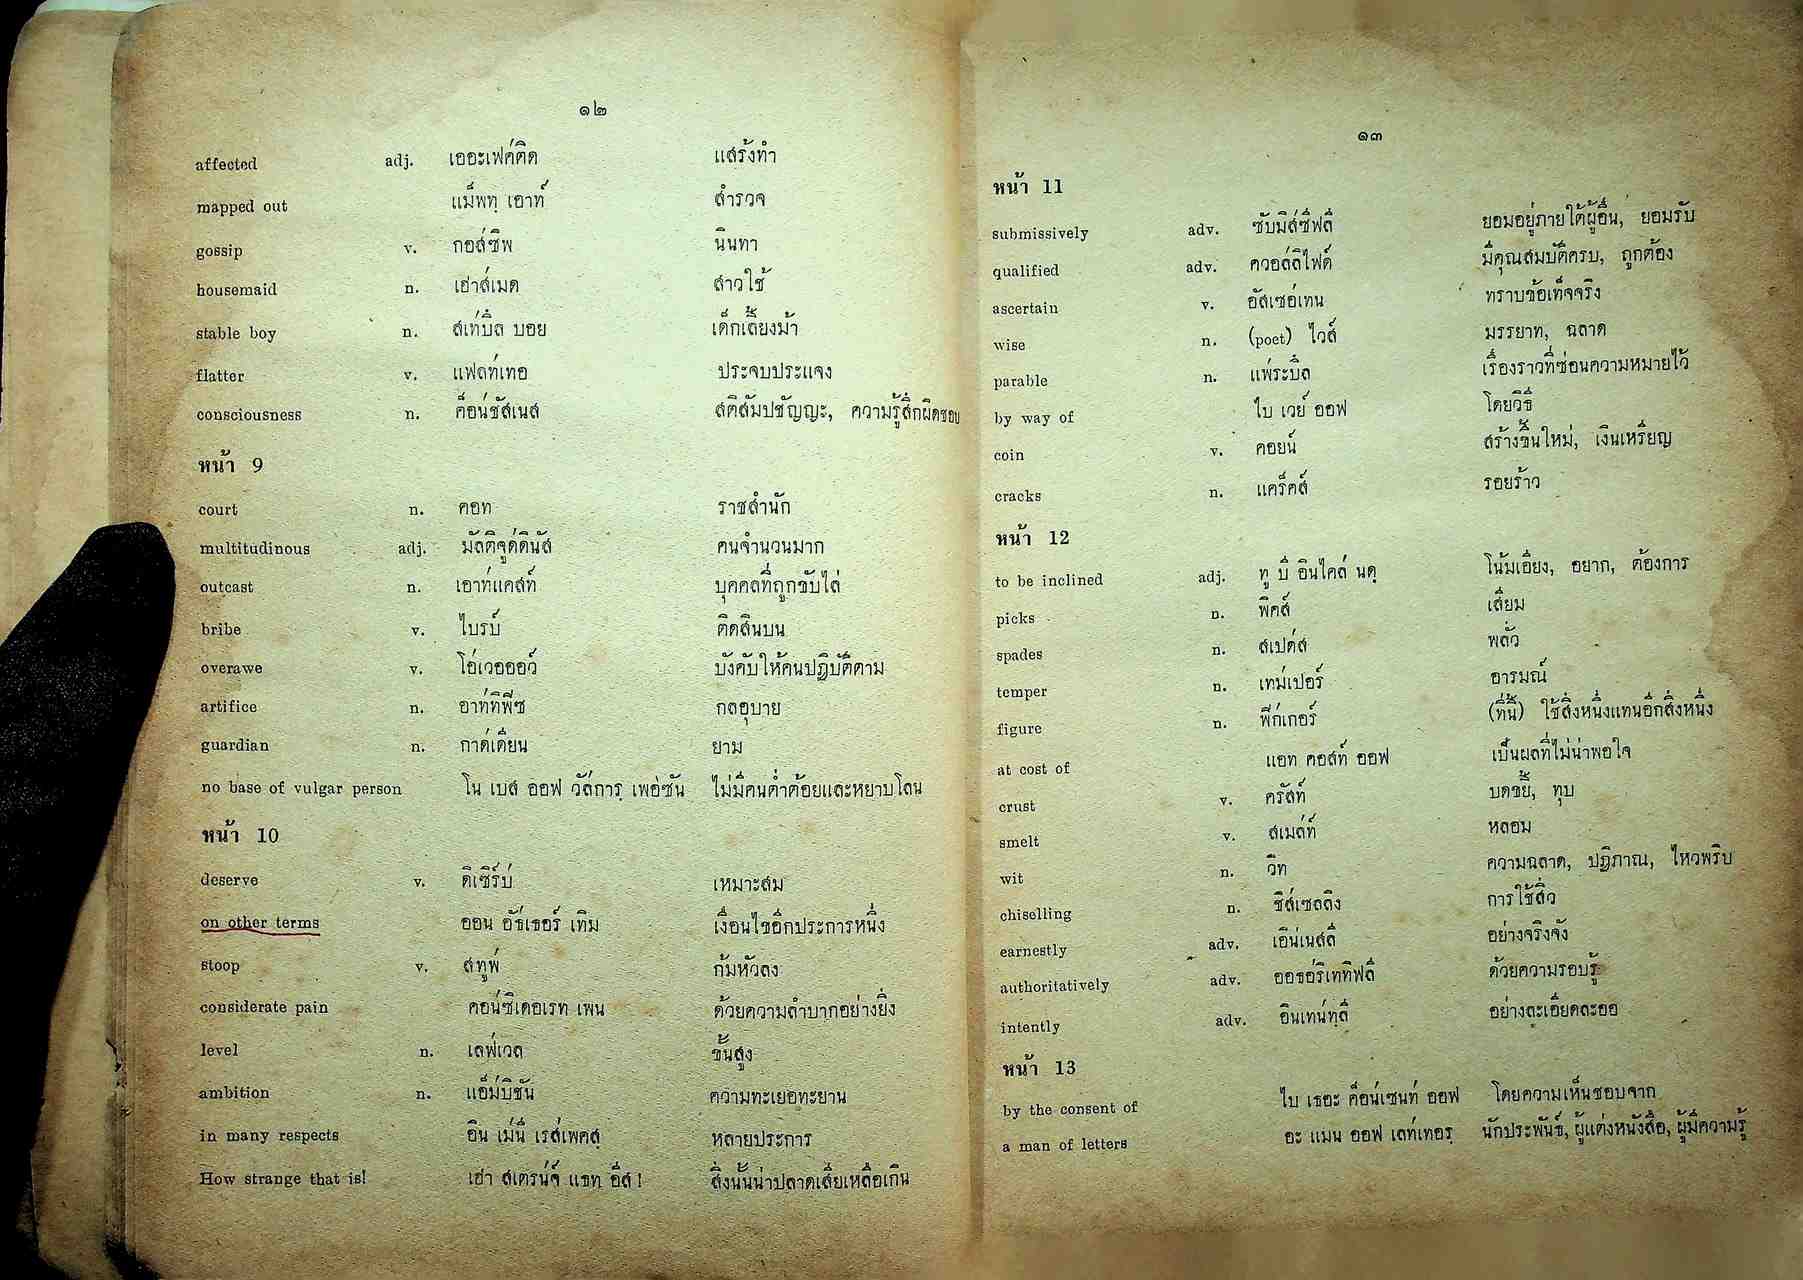 ๑๒
affected adj. เออะเฟค่คิด แสร้งทำ
mapped out แม็พทฺ เอาท์ สำรวจ
gossip v. กอส่ซิพ นินทา
housemaid n. เฮ่าส์เมด สาวใช้
stable boy n. สเท่บึ้ล บอย เด็กเลี้ยงม้า
flatter v. แฟลท่เทอ ประจบประแจง
consciousness n. ค็อน่ชัสเนส สติสัมปชัญญะ, ความรู้สึกผิดชอบ
หน้า 9
court n. คอท ราชสำนัก
multitudinous adj. มัลติจูด่ดินัส คนจำนวนมาก
outcast n. เอาท่แคสท์ บุคคลที่ถูกขับไล่
bribe v. ไบรบ์ ติดสินบน
overawe v. โอ่เวอออว์ บังคับให้คนปฏิบัติตาม
artifice n. อาท่ทิฟีซ กลอุบาย
guardian n. กาด่เดียน ยาม
no base of vulgar person โน เบส ออฟ วัล่การฺ เพอ่ซัน ไม่มีคนต่ำต้อยและหยาบโลน
หน้า 10
deserve v. ดิเซิร์บ่ เหมาะสม
on other terms ออน อัธ่เธอร์ เทิม เงื่อนไขอีกประการหนึ่ง
stoop v. สทูพ่ ก้มหัวลง
considerate pain คอน่ซิเดอเรท เพน ด้วยความลำบากอย่างยิ่ง
level n. เลฟ่เวล ชั้นสูง
ambition n. แอ็ม่บิชัน ความทะเยอทะยาน
in many respects อิน เม่นี่ เรส่เพคสฺ หลายประการ
How strange that is! เฮา สเตรน่จ์ แธทฺ อีส ! สิ่งนั้นน่าปลาดเสียเหลือเกิน
๑๓
หน้า 11
submissively adv. ซับมิส่ซีฟลี่ ยอมอยู่ภายใต้ผู้อื่น, ยอมรับ
qualified adv. ควอล่ลิไฟด์ มีคุณสมบัติครบ, ถูกต้อง
ascertain v. อัสเซอ่เทน ทราบข้อเท็จจริง
wise n. (poet) ไวส์ มรรยาท, ฉลาด
parable n. แพ่ระบึ้ล เรื่องราวที่ซ่อนความหมายไว้
by way of ไบ เวย์ ออฟ โดยวิธี
coin v. คอยน์ สร้างขึ้นใหม่, เงินเหรียญ
cracks n. แคร็คส์ รอยร้าว
หน้า 12
to be inclined adj. ทู บี อินไคล่ นดฺ โน้มเอียง, อยาก, ต้องการ
picks n. พิคส์ เสียม
spades n. สเปด่ส พลั่ว
temper n. เทม่เปอร์ อารมณ์
figure n. ฟีก่เกอร์ (ที่นี้) ใช้สิ่งหนึ่งแทนอีกสิ่งหนึ่ง
at cost of แอท คอสท์ ออฟ เป็นผลที่ไม่น่าพอใจ
crust v. ครัสท์ บดขยี้, ทุบ
smelt v. สเมล่ท์ หลอม
wit n. วิท ความฉลาด, ปฏิภาณ, ไหวพริบ
chiselling n. ชีส่เซลลิง การใช้สิ่ว
earnestly adv. เอิน่เนสลี่ อย่างจริงจัง
authoritatively adv. ออธอ่ริเททิฟลี่ ด้วยความรอบรู้
intently adv. อินเทน่ทฺลี่ อย่างละเอียดละออ
หน้า 13
by the consent of ไบ เธอะ ค็อน่เซนท่ ออฟ โดยความเห็นชอบจาก
a man of letters อะ แมน ออฟ เลท่เทอรฺ นักประพันธ์, ผู้แต่งหนังสือ, ผู้มีความรู้